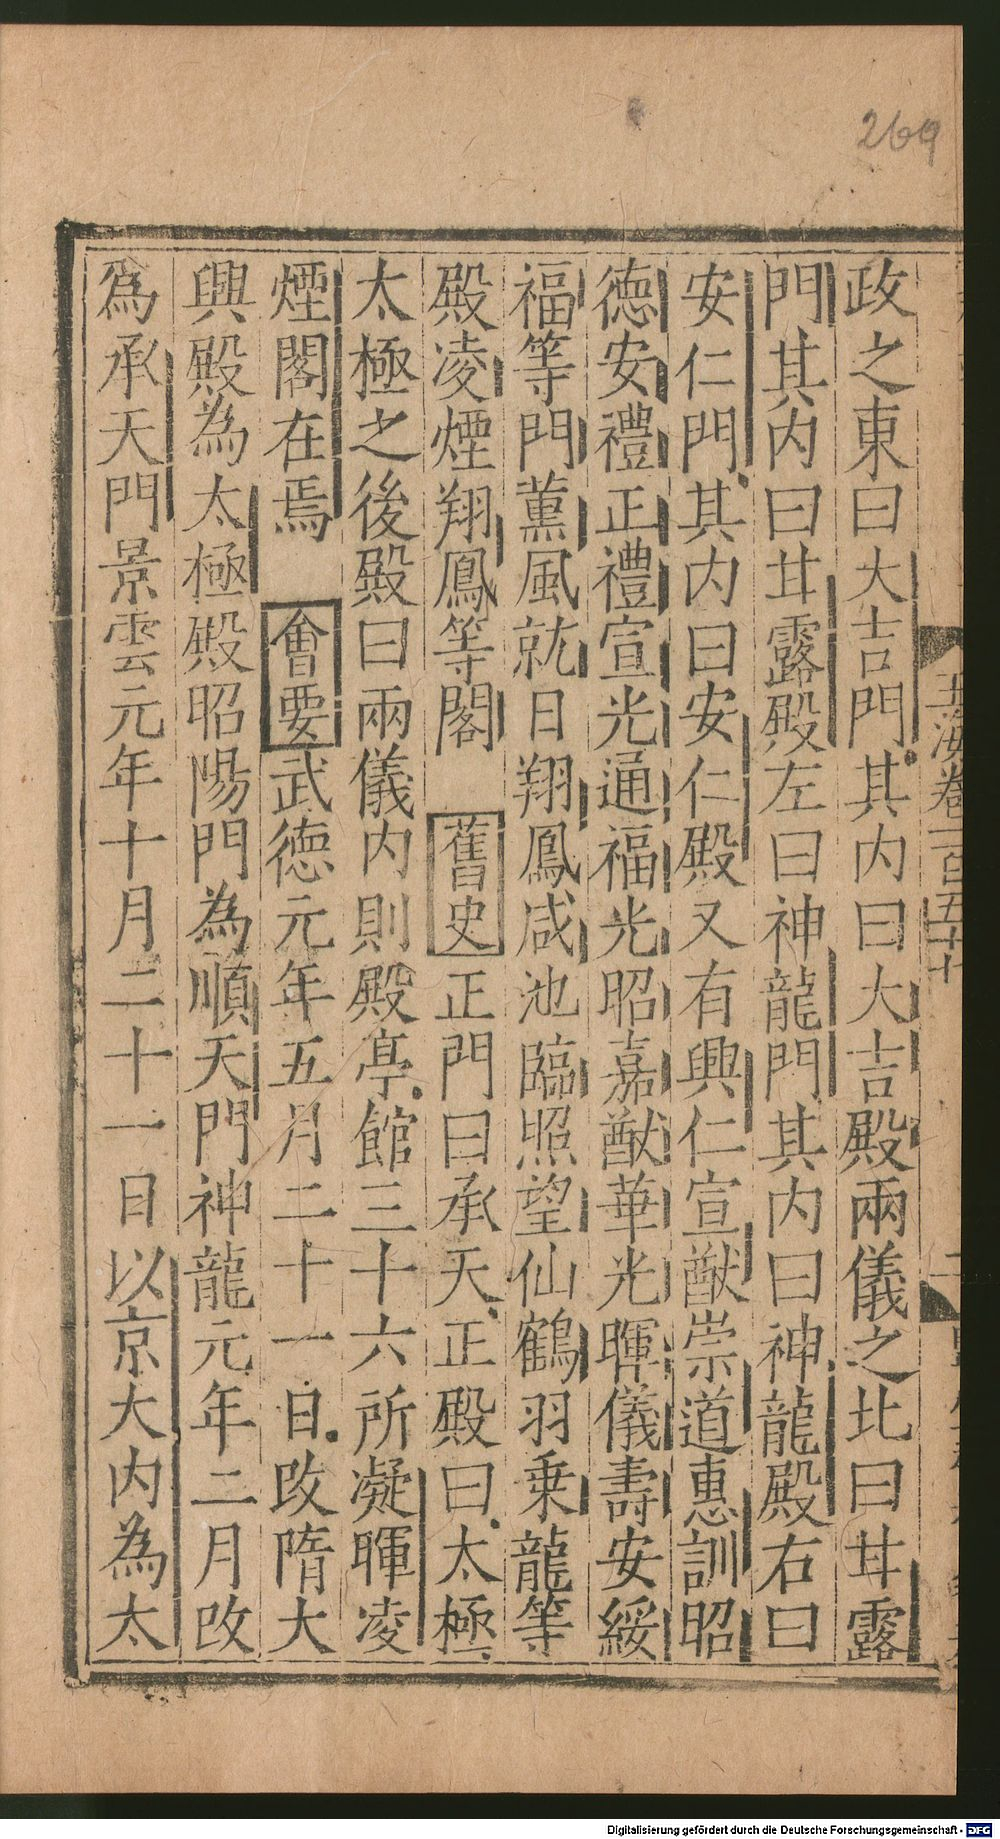 269
政之東曰大吉門其内曰大吉殿兩儀之北曰甘露
門其内曰甘露殿左曰神龍門其内曰神龍殿右曰
安仁門其内曰安仁殿又有興仁宣猷崇道惠訓昭
德安禮正禮宣光通福光昭嘉猷華光暉儀壽安綏
福等門薰風就日翔鳳咸池臨照望仙鶴羽乗龍等
殿凌煙翔鳳等閣 舊史正門曰承天正殿曰太極
太極之後殿曰兩儀内則殿亭館三十六所凝暉凌
煙閣在焉 會要武德元年五月二十一日改隋大
興殿為太極殿昭陽門為順天門神龍元年二月改
爲承天門景雲元年十月二十一日以京大内為太
玉海卷一百五十七
Digitalisierung gefördert durch die Deutsche Forschungsgemeinschaft - DFG